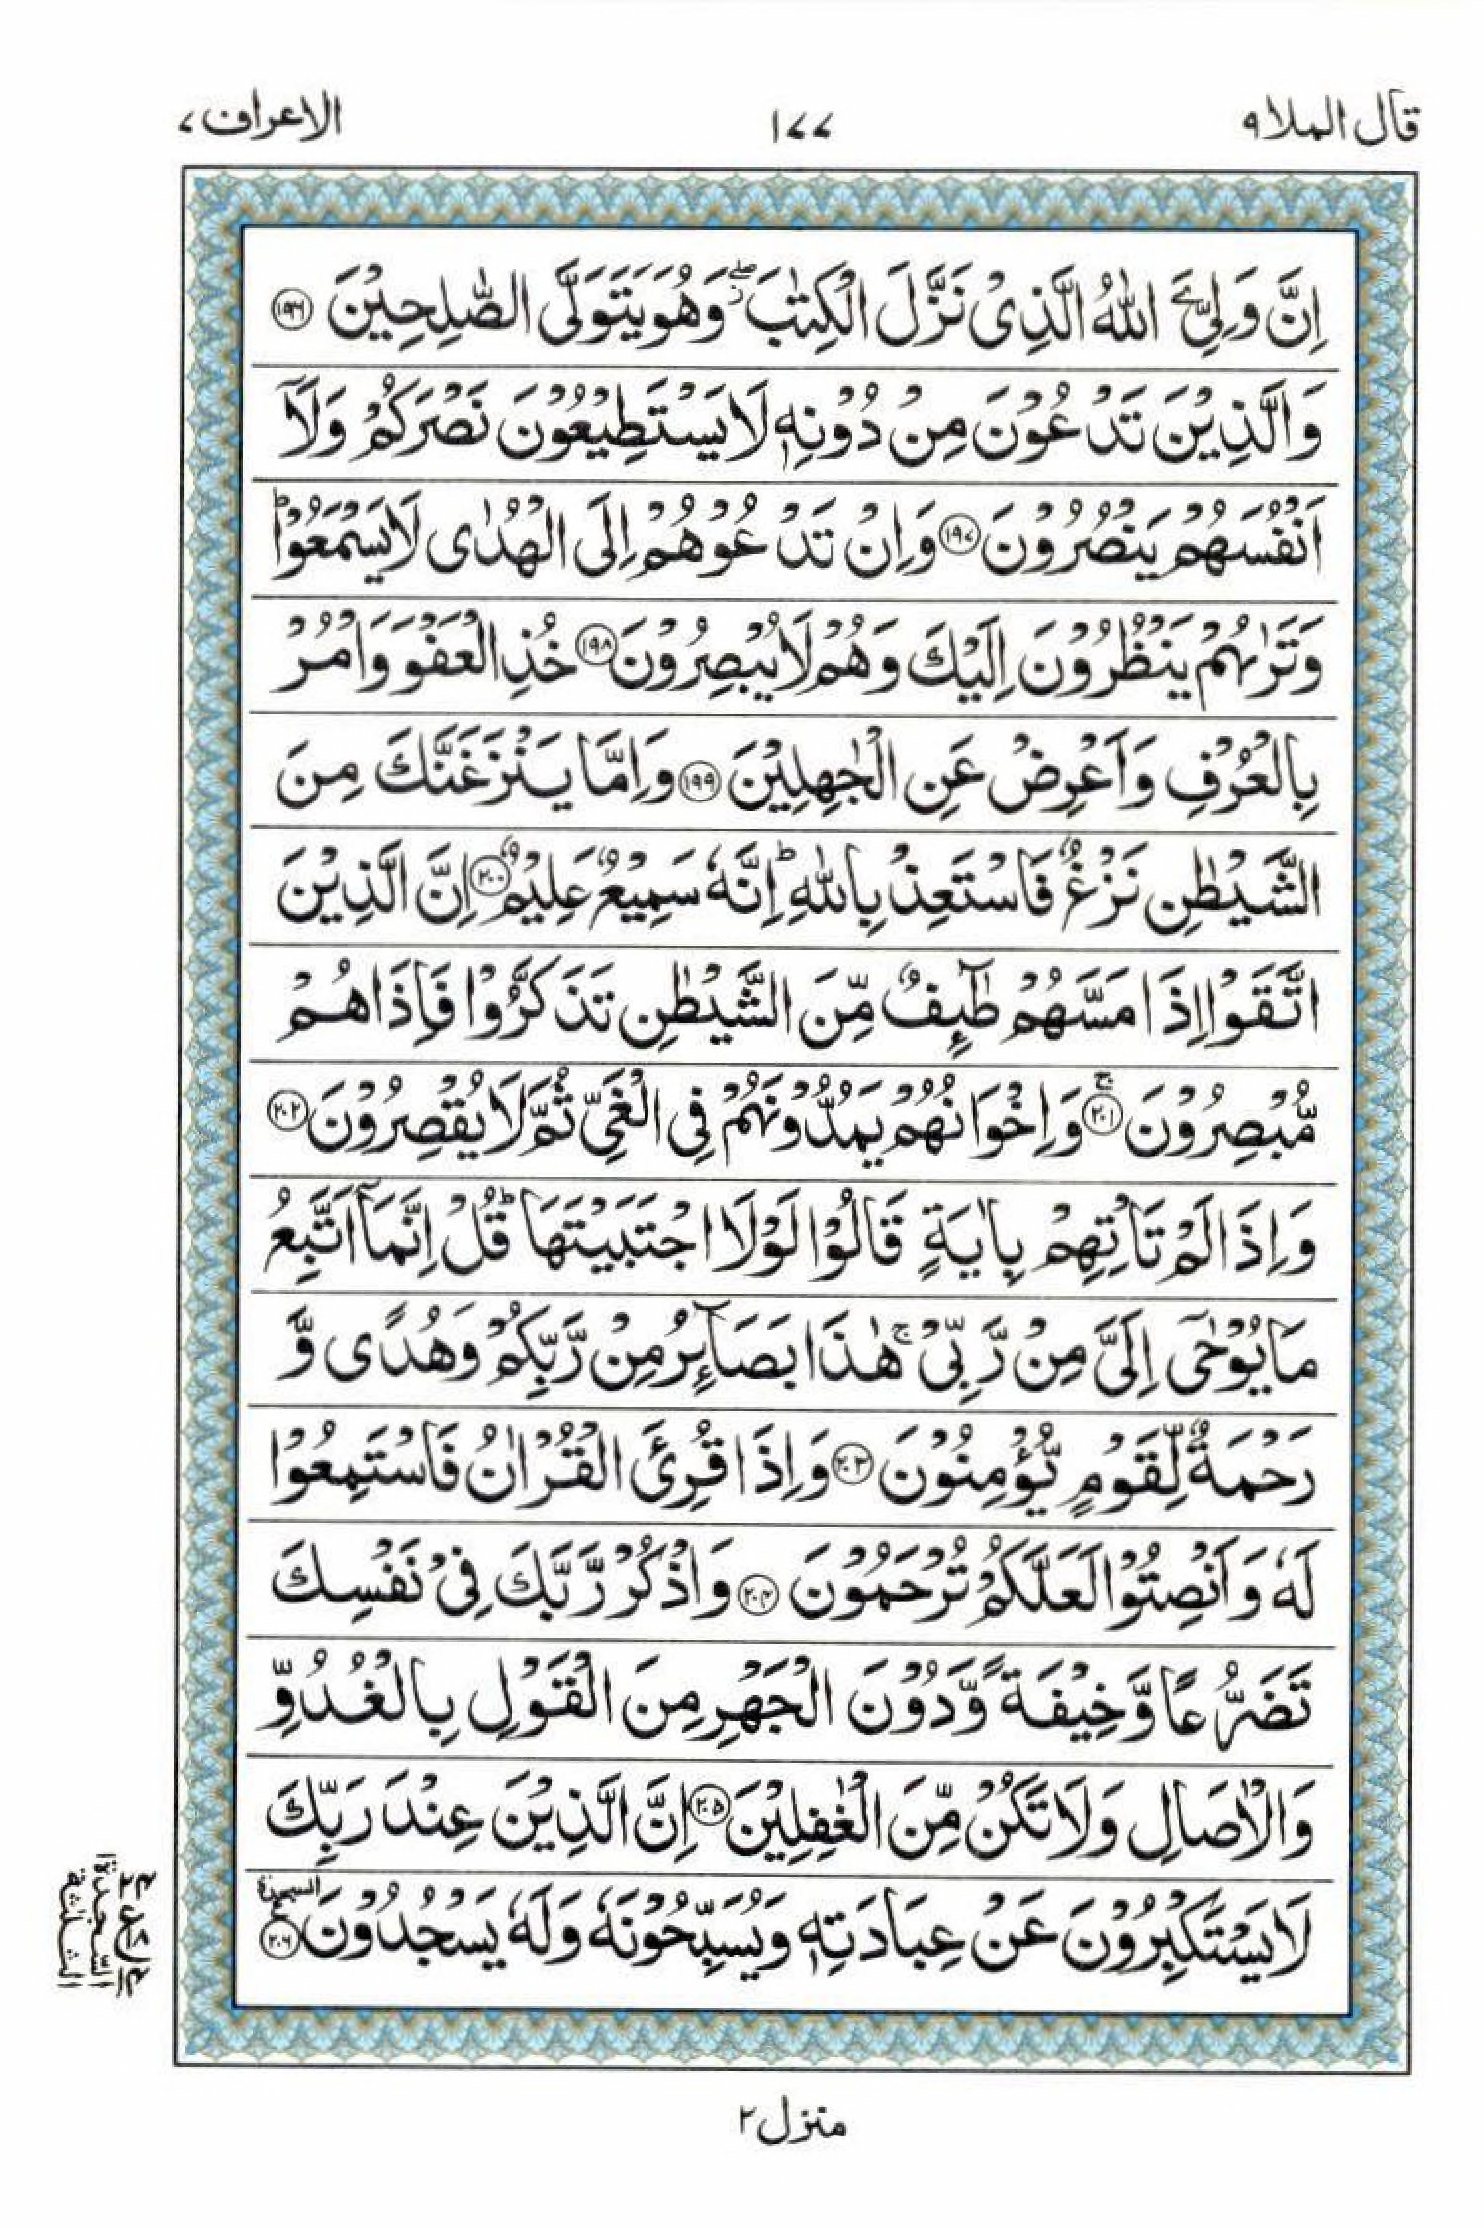 قال الملا ٩
١٧٧
الاعراف ٧
اِنَّ وَلِيِّۦَ اللّٰهُ الَّذِىْ نَزَّلَ الْكِتٰبَ ۖ وَهُوَ يَتَوَلَّى الصّٰلِحِيْنَ ﴿١٩٦﴾
وَالَّذِيْنَ تَدْعُوْنَ مِنْ دُوْنِهٖ لَا يَسْتَطِيْعُوْنَ نَصْرَكُمْ وَلَآ
اَنْفُسَهُمْ يَنْصُرُوْنَ ﴿١٩٧﴾ وَاِنْ تَدْعُوْهُمْ اِلَى الْهُدٰى لَا يَسْمَعُوْا ؕ
وَتَرٰىهُمْ يَنْظُرُوْنَ اِلَيْكَ وَهُمْ لَا يُبْصِرُوْنَ ﴿١٩٨﴾ خُذِ الْعَفْوَ وَاْمُرْ
بِالْعُرْفِ وَاَعْرِضْ عَنِ الْجٰهِلِيْنَ ﴿١٩٩﴾ وَاِمَّا يَنْزَغَنَّكَ مِنَ
الشَّيْطٰنِ نَزْغٌ فَاسْتَعِذْ بِاللّٰهِ ؕ اِنَّهٗ سَمِيْعٌ عَلِيْمٌ ﴿٢٠٠﴾ اِنَّ الَّذِيْنَ
اتَّقَوْا اِذَا مَسَّهُمْ طٰٓئِفٌ مِّنَ الشَّيْطٰنِ تَذَكَّرُوْا فَاِذَا هُمْ
مُّبْصِرُوْنَ ﴿٢٠١﴾ ۚ وَاِخْوَانُهُمْ يَمُدُّوْنَهُمْ فِى الْغَىِّ ثُمَّ لَا يُقْصِرُوْنَ ﴿٢٠٢﴾
وَاِذَا لَمْ تَاْتِهِمْ بِاٰيَةٍ قَالُوْا لَوْلَا اجْتَبَيْتَهَا ؕ قُلْ اِنَّمَآ اَتَّبِعُ
مَا يُوْحٰٓى اِلَىَّ مِنْ رَّبِّىْ ۚ هٰذَا بَصَآئِرُ مِنْ رَّبِّكُمْ وَهُدًى وَّ
رَحْمَةٌ لِّقَوْمٍ يُّؤْمِنُوْنَ ﴿٢٠٣﴾ وَاِذَا قُرِئَ الْقُرْاٰنُ فَاسْتَمِعُوْا
لَهٗ وَاَنْصِتُوْا لَعَلَّكُمْ تُرْحَمُوْنَ ﴿٢٠٤﴾ وَاذْكُرْ رَّبَّكَ فِىْ نَفْسِكَ
تَضَرُّعًا وَّخِيْفَةً وَّدُوْنَ الْجَهْرِ مِنَ الْقَوْلِ بِالْغُدُوِّ
وَالْاٰصَالِ وَلَا تَكُنْ مِّنَ الْغٰفِلِيْنَ ﴿٢٠٥﴾ اِنَّ الَّذِيْنَ عِنْدَ رَبِّكَ
لَا يَسْتَكْبِرُوْنَ عَنْ عِبَادَتِهٖ وَيُسَبِّحُوْنَهٗ وَلَهٗ يَسْجُدُوْنَ ﴿٢٠٦﴾ السجدة
منزل ٢